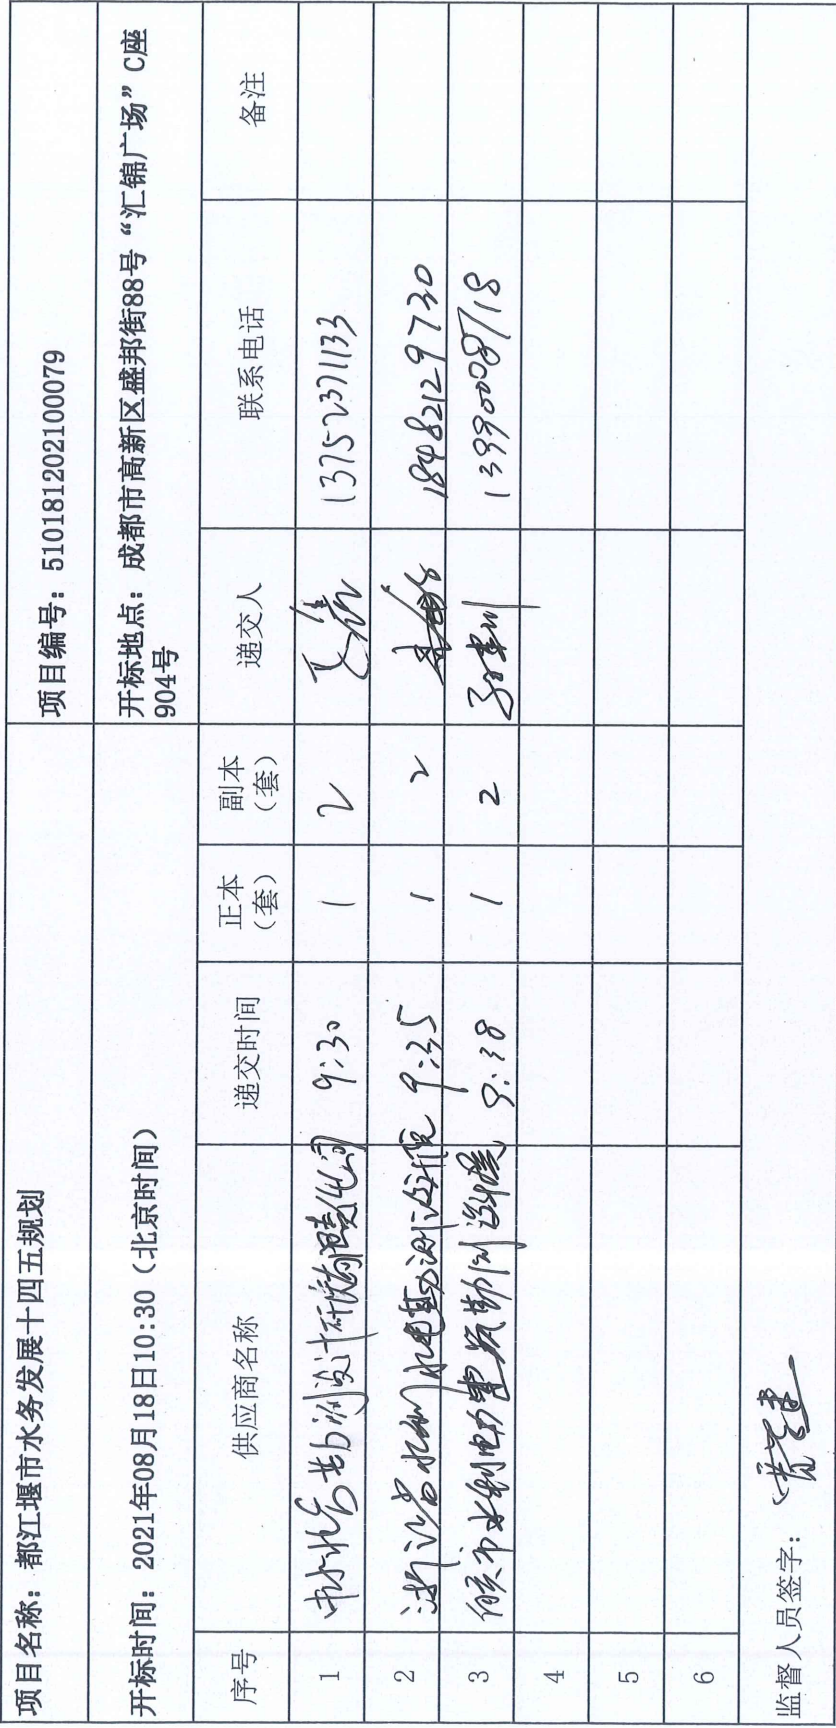 项目名称：都江堰市水务发展十四五规划 项目编号：510181202100079
开标时间：2021年08月18日10:30（北京时间） 开标地点：成都市高新区盛邦街88号“汇锦广场”C座
904号
序号 供应商名称 递交时间 正本（套） 副本（套） 递交人 联系电话 备注
1 中水北方勘测设计研究有限责任公司 9:30 1 2 13752371133
2 浙江省水利水电勘测设计院 9:35 1 2 18482129730
3 水利电力建筑勘测设计院 9:38 1 2 13990008718
4
5
6
监督人员签字：